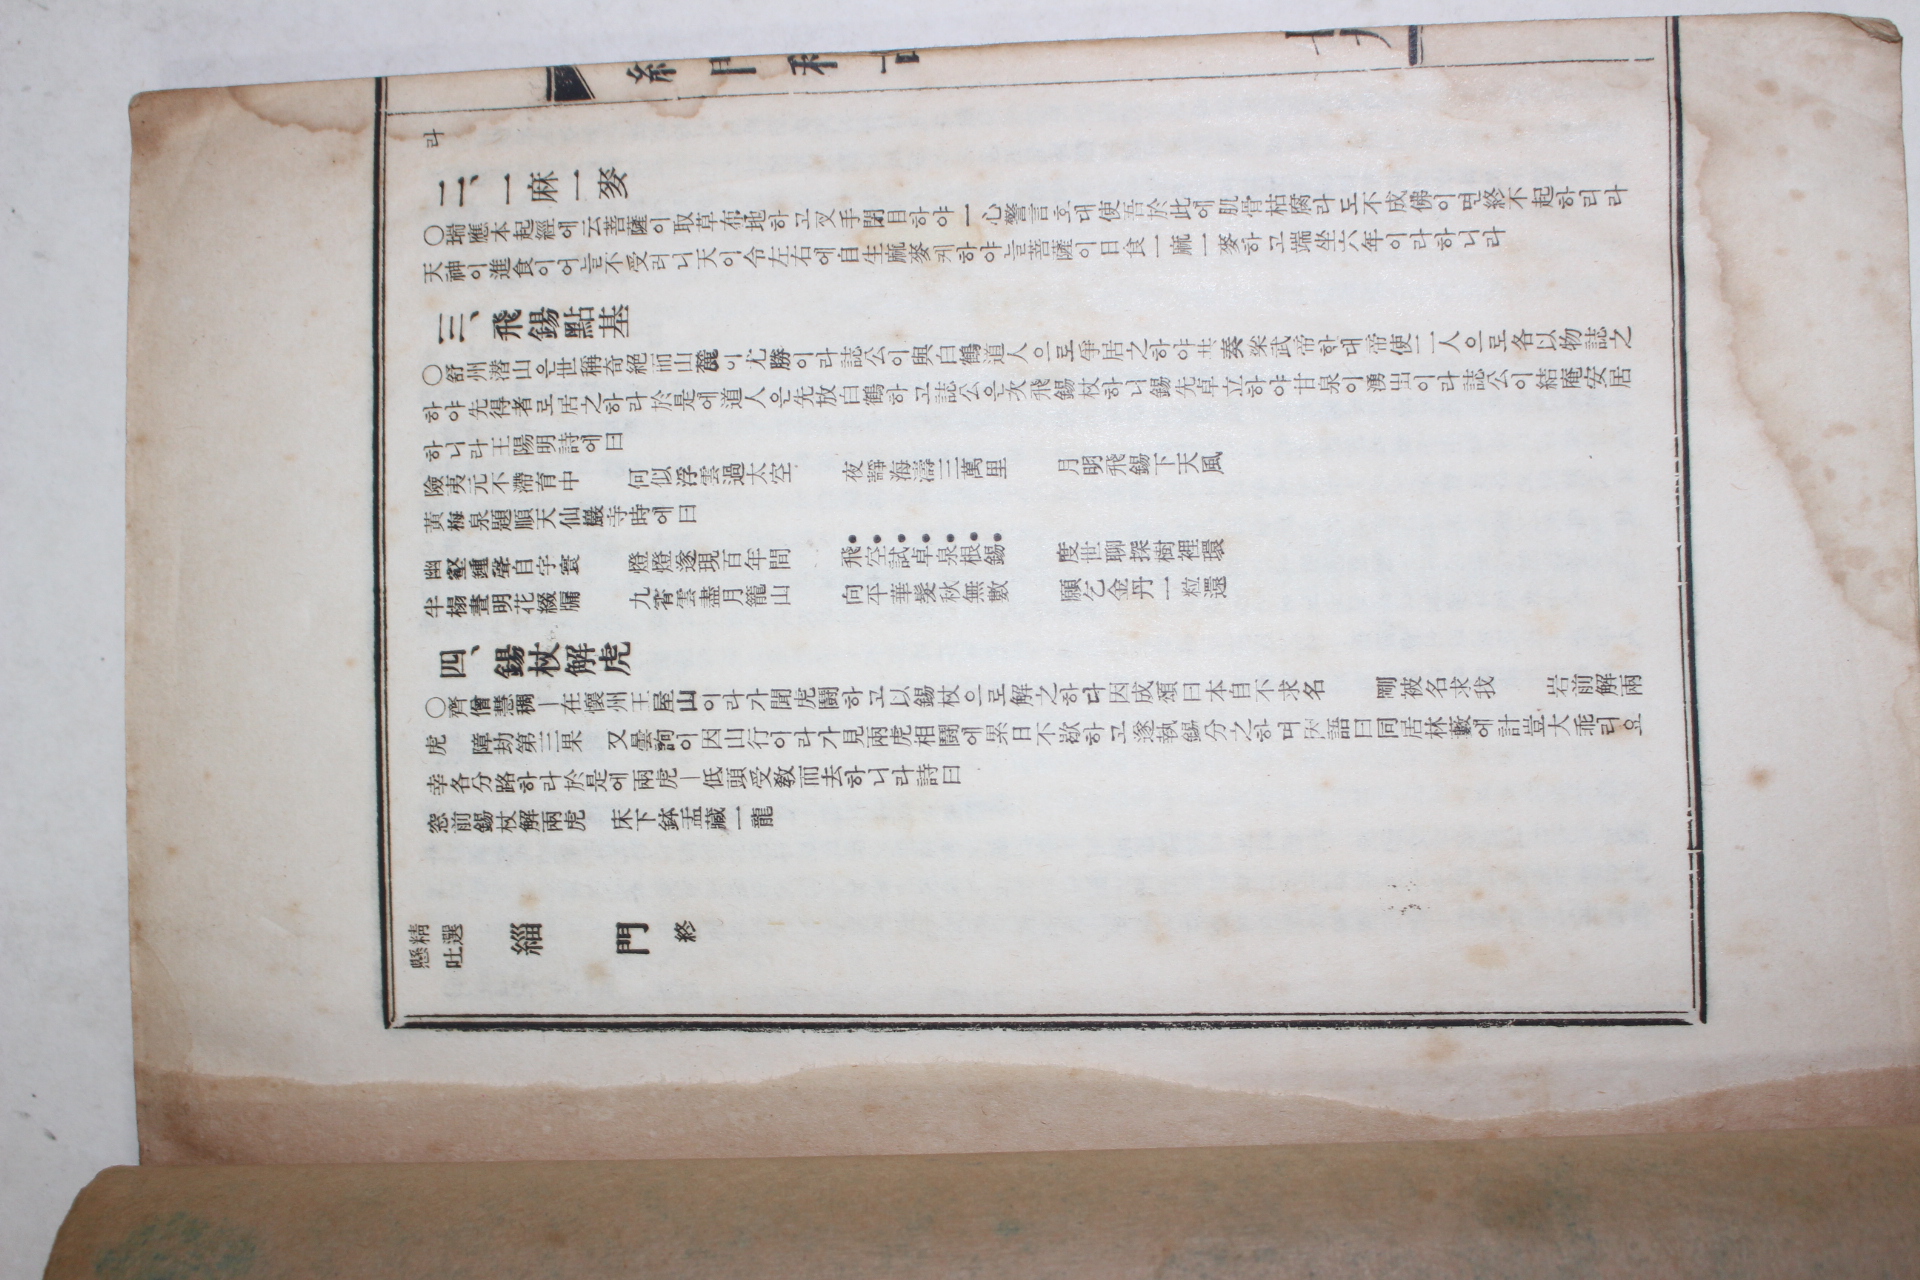 라
二、一麻一麥
○瑞應本起經에云菩薩이取草布地하고叉手閉目하야一心誓言호대使吾於此에肌骨枯腐라도不成佛이면終不起하리라
天神이進食이어늘不受러니天이令左右에自生麻麥케하야늘菩薩이日食一麻一麥하고端坐六年이라하니라
三、飛錫點基
○舒州潜山은世稱奇絕而山麓이尤勝이라誌公이與白鶴道人으로爭居之하야共奏梁武帝한대帝使二人으로各以物誌之
하야先得者로居之하라於是에道人은先放白鶴하고誌公은次飛錫杖하니錫先卓立하야甘泉이湧出이라誌公이結庵安居
하니라王陽明詩에曰
險夷元不滯胷中 何似浮雲過太空 夜靜海濤三萬里 月明飛錫下天風
黃梅泉題順天仙巖寺時에曰
幽壑鍾聲自宇寰 燈燈遂現百年間 飛空試卓泉根錫 度世聊探樹裡環
半榻晝明花綴牖 九霄雲盡月籠山 向平華髮秋無數 願乞金丹一粒還
四、錫杖解虎
○齊僧慧稠ㅣ在懷州王屋山이라가聞虎鬪하고以錫杖으로解之하다因成頌曰本自不求名 剛被名求我 岩前解兩
虎 障劫第三果 又曇詢이因山行이라가見兩虎相鬪에累日不歇하고遂執錫分之하며因語曰同居林藪에計豈大乖리요
幸各分路하라於是에兩虎ㅣ低頭受教而去하니라詩曰
窓前錫杖解兩虎 床下鉢盂藏一龍
精選
懸吐
緇門終